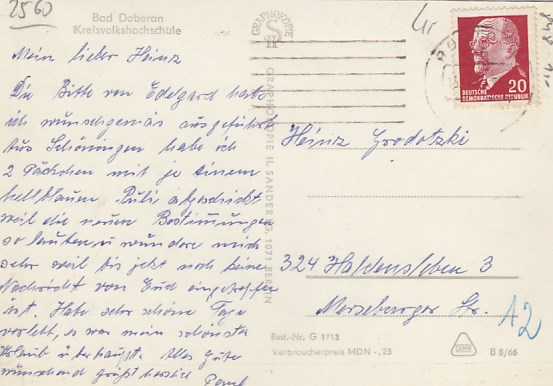 2560
Bad Doberan
Kreisvolkshochschule
Mein lieber Heinz
Die Bitte von Edelgard hatte
ich wunschgemäss ausgeführt
Aus Schöningen habe ich
2 Päckchen mit je einem
hellblauen Puli abgeschickt
weil die neuen Bestimmungen
so lauten u wundere mich
sehr weil bis jetzt noch keine
Nachricht von Euch eingetroffen
ist. Habe sehr schöne Tage
verlebt, es war mein schönster
Urlaub überhaupt. Alles Gute
wünschend grüßt herzlich
GRAPHOKOPIE
GRAPHOKOPIE H. SANDER KG, 1071 BERLIN
20
DEUTSCHE
DEMOKRATISCHE REPUBLIK
Heinz Grodotzki
324 Haldensleben 3
Merseburger Str.
12
Best.-Nr. G 1713
Verbraucherpreis MDN -,25
B 8/66